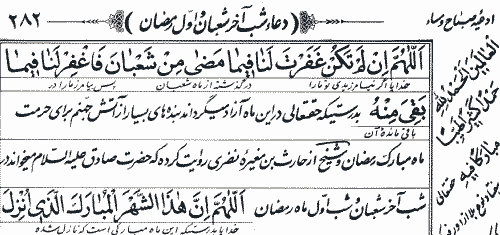 ادعیه صباح و مساء
(دعاء شب آخر شعبان و اول رمضان)
۲۸۲
اَللّٰهُمَّ اِنْ لَمْ تَكُنْ غَفَرْتَ لَنا فيما مَضىٰ مِنْ شَعْبانَ فَاغْفِرْ لَنا فيما
خدایا اگر نیامرزیدی تو ما را در گذشته از ماه شعبان پس بیامرز ما را در
بَقِيَ مِنْهُ بدرستیکه حقتعالی در این ماه آزاد میگرداند بنده‌های بسیار از آتش جهنم برای حرمت
باقی مانده آن
ماه مبارک رمضان و شیخ از حارث بن مغیره نضری روایت کرده که حضرت صادق علیه السلام میخواند در
شب آخر شعبان و شب اول ماه رمضان اَللّٰهُمَّ اِنَّ هٰذَا الشَّهْرَ الْمُبارَكَ الَّذي اُنْزِلَ
خدایا بدرستیکه این ماه مبارکی است که نازل شده
حمدا كثيرا طيبا
مباركا فيه